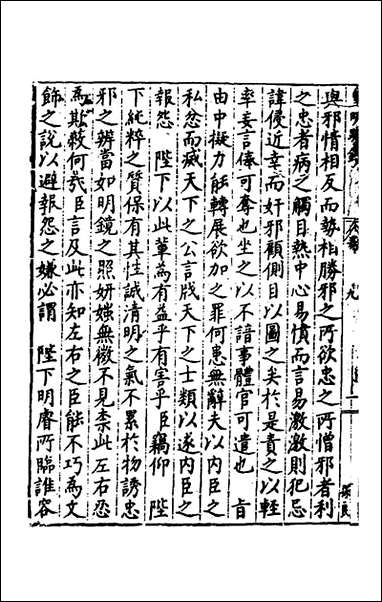 與邪情相反而勢相勝邪之所欲忠之所憎邪者利
之忠者病之觸目熱中心易憤而言易激激則犯忌
諱侵近幸而奸邪顧側目以圖之矣於是責之以輕
率妄言俸可奪也坐之以不諳事體官可遣也 旨
由中擬力能轉展欲加之罪何患無辭夫以內臣之
私忿而滅天下之公言戕天下之士類以遂內臣之
報怨 陛下以此輩為有益乎有害乎臣竊仰 陛
下純粹之質保有其性誠清明之氣不累於物誘忠
邪之辨當如明鏡之照妍媸無微不見柰此左右忍
為斯蔽何哉臣言及此亦知左右之臣能不巧為文
飾之說以避報怨之嫌必謂 陛下明睿所臨誰容